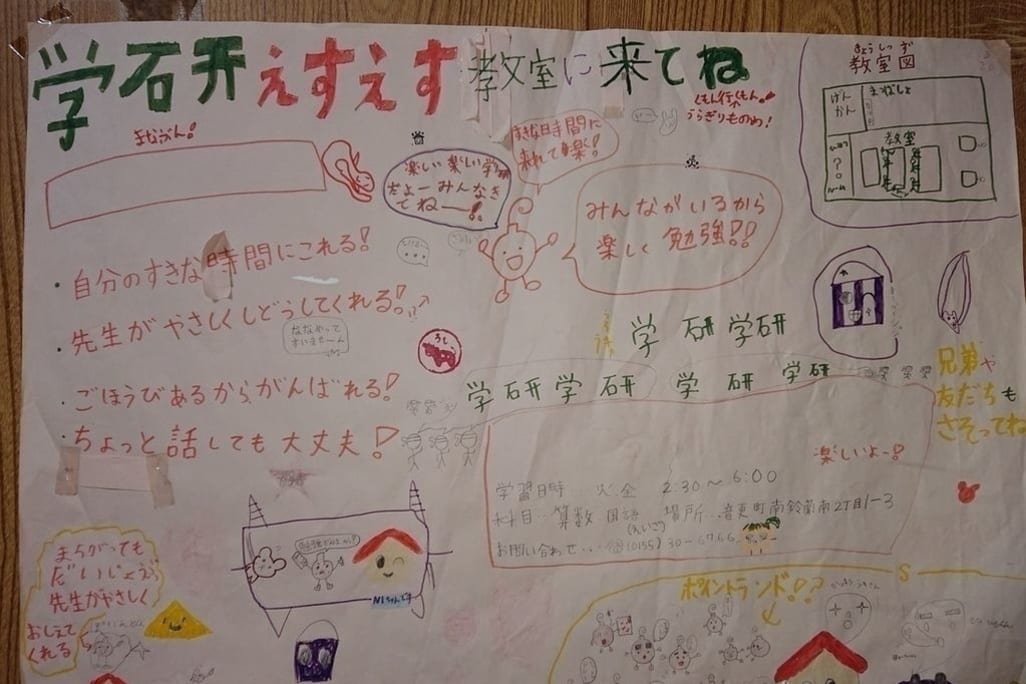 学石研えすえす教室に来てね
くもん行くもん!
うらぎりものめ!
きょうしつず
教室図
げん
かん
教室
すきな時間に
来れて楽!
楽しい楽しい学研
だよーみんなき
てねー!
みんながいるから
楽しく勉強!!
・自分のすきな時間にこれる!
・先生がやさしくしどうしてくれる!
ななめって
すいませーん
・ごほうびあるからがんばれる!
・ちょっと話しても大丈夫!
学研学研
学研学研 学研学研
兄弟や
友だちも
さそってね
楽しいよー!
学習日時…火、金 2:30〜6:00
科目…算数 国語 場所…音更町南鈴蘭南2丁目1-3
(えいご)
まちがっても
だいじょうぶ
先生がやさしく
おしえて
くれる
ポイントランド!?